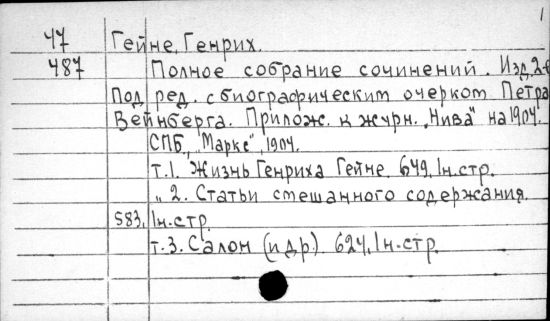 1
47 Гейне, Генрих.
487 Полное собрание сочинений. Изд. 2-е
под ред. с биографическим очерком Петра
Вейнберга. Прилож. к журн. „Нива" на 1904.
СПБ., „Маркс", 1904.
т.1. Жизнь Генриха Гейне. 649, 1н.стр.
„ 2. Статьи смешанного содержания.
583, 1н.стр.
т.3. Салон (и др.) 624, 1н.стр.